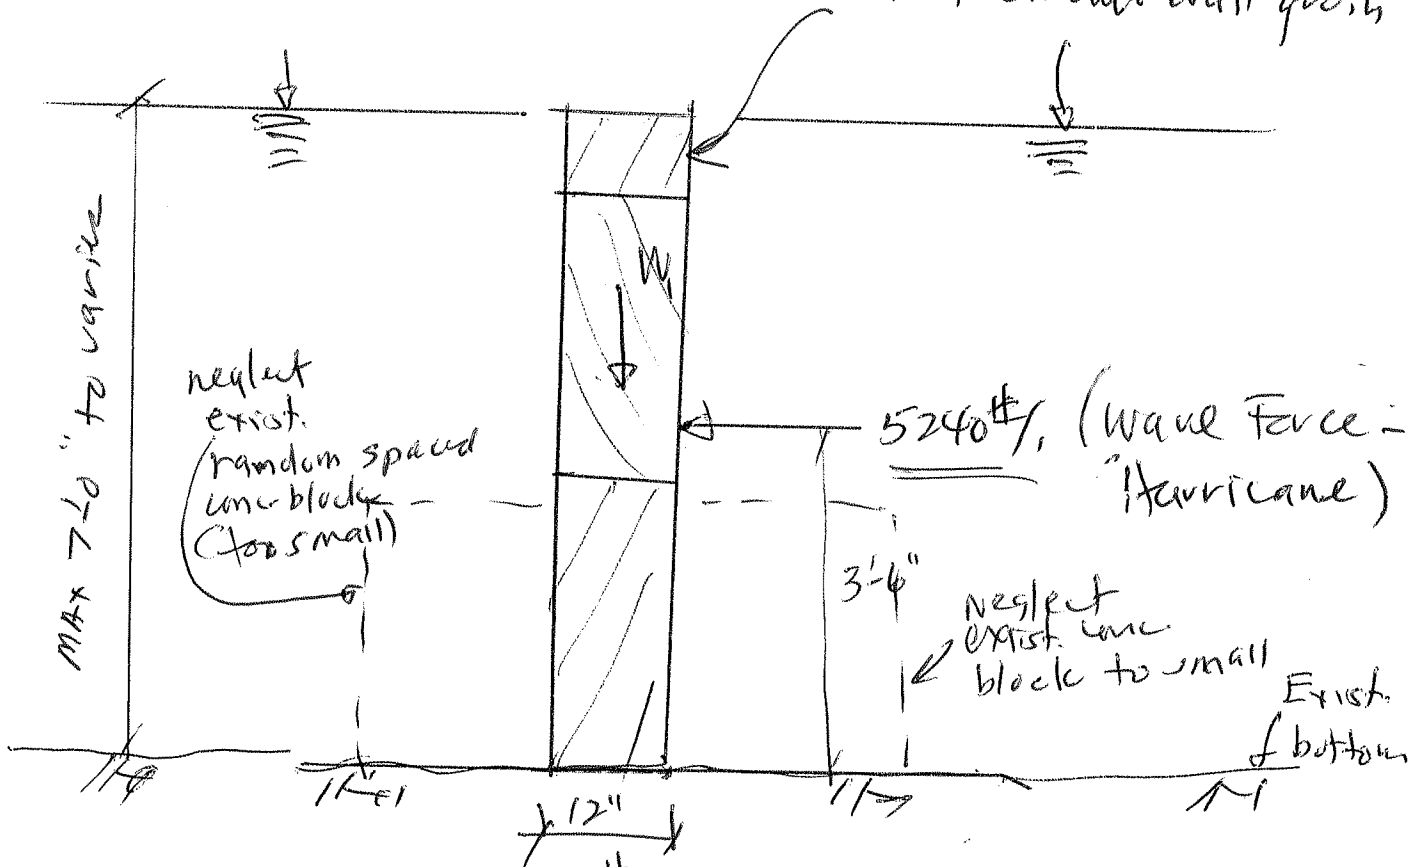 wall
MAX 7'-0" to varies
W₁
neglect
exist.
random spaced
conc block
(too small)
5240#/, (Wave Force -
Hurricane)
3'-4"
Neglect
exist. conc.
block to small
Exist.
bottom
12"